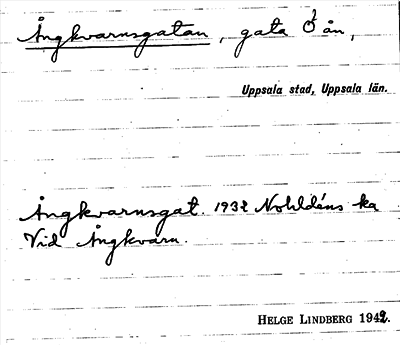 Ångkvarnsgatan, gata Ö ån,
Uppsala stad, Uppsala län.
Ångkvarnsgat. 1932 Nohldéns ka
Vid Ångkvarn.
HELGE LINDBERG 1942.